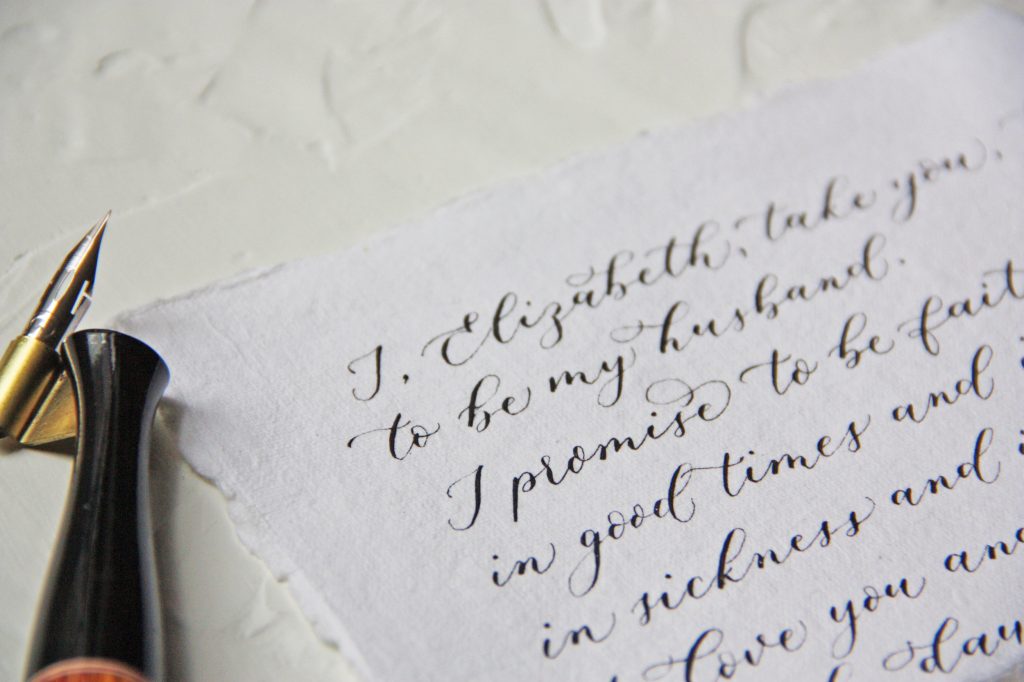 I, Elizabeth, take you,
to be my husband.
I promise to be fait
in good times and i
in sickness and i
love you and